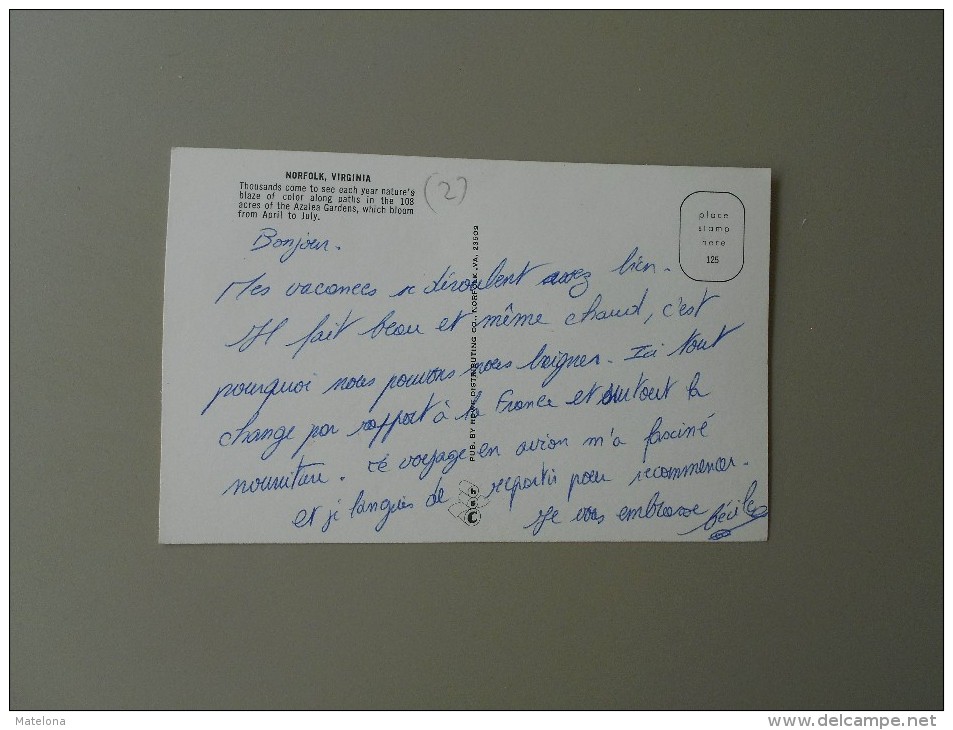 NORFOLK, VIRGINIA
Thousands come to see each year nature's
blaze of color along paths in the 108
acres of the Azalea Gardens, which bloom
from April to July.
(2)
place
stamp
here
125
PUB. BY REWE DISTRIBUTING CO., NORFOLK, VA. 23509
Bonjour.
Mes vacances se déroulent assez bien.
Il fait beau et même chaud, c'est
pourquoi nous pouvons nous baigner. Ici tout
change par rapport à la France et surtout la
nourriture. Le voyage en avion m'a fasciné
et je languis de repartir pour recommencer.
Je vous embrasse Cécile
Matelona
www.delcampe.net